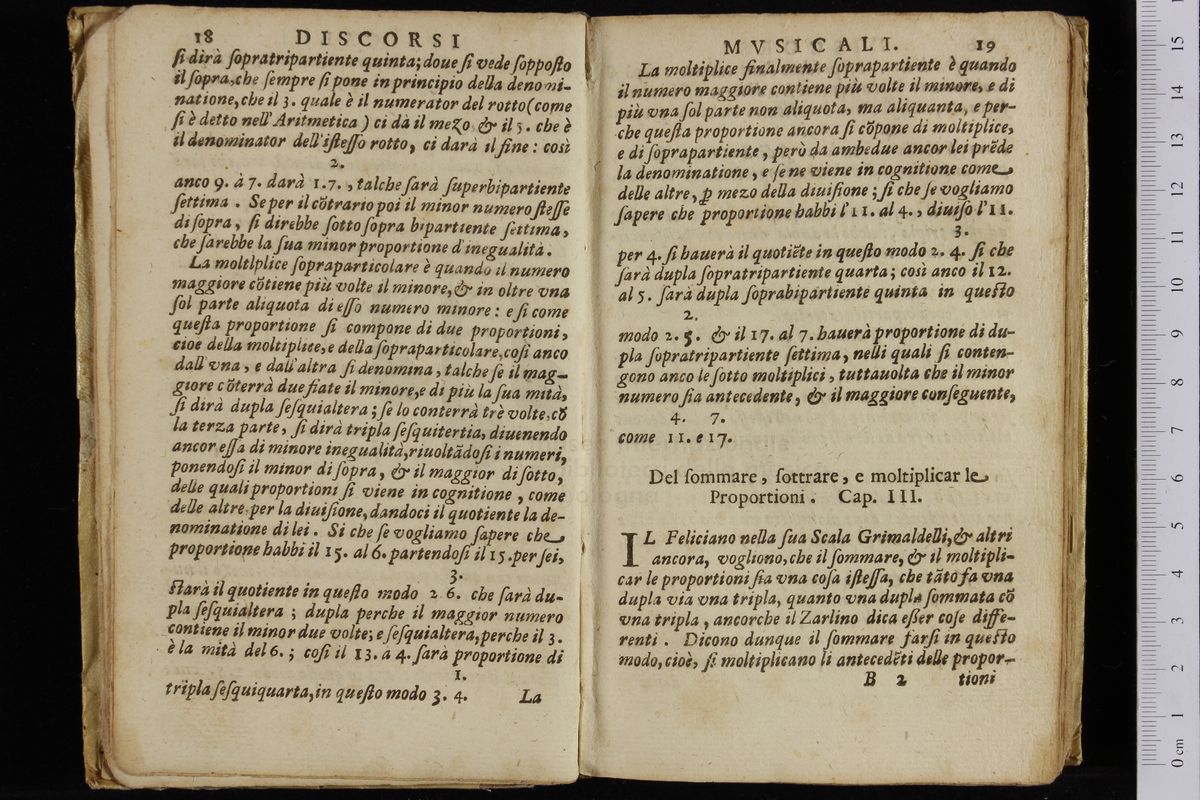 18 DISCORSI
ſi dirà ſopratripartiente quinta; doue ſi vede ſoppoſto
il ſopra, che ſempre ſi pone in principio della denomi-
natione, che il 3. quale è il numerator del rotto (come
ſi è detto nell'Aritmetica) ci dà il mezo & il 5. che è
il denominator dell'iſteſſo rotto, ci darà il fine: così
2.
anco 9. à 7. darà 1.7., talche ſarà ſuperbipartiente
ſettima. Se per il cõtrario poi il minor numero ſteſſe
di ſopra, ſi direbbe ſotto ſopra bipartiente ſettima,
che ſarebbe la ſua minor proportione d'inegualità.
La moltlplice ſopraparticolare è quando il numero
maggiore cõtiene più volte il minore, & in oltre vna
ſol parte aliquota di eſſo numero minore: e ſi come
queſta proportione ſi compone di due proportioni,
cioè della moltiplice, e della ſopraparticolare, coſi anco
dall'vna, e dall'altra ſi denomina, talche ſe il mag-
giore cõterrà due fiate il minore, e di più la ſua mità,
ſi dirà dupla ſeſquialtera; ſe lo conterrà trè volte, cõ
la terza parte, ſi dirà tripla ſeſquitertia, diuenendo
ancor eſſa di minore inegualità, riuoltãdoſi i numeri,
ponendoſi il minor di ſopra, & il maggior di ſotto,
delle quali proportioni ſi viene in cognitione, come
delle altre per la diuiſione, dandoci il quotiente la de-
nominatione di lei. Si che ſe vogliamo ſapere che
proportione habbi il 15. al 6. partendoſi il 15. per ſei,
3.
ſtarà il quotiente in queſto modo 2 6. che ſarà du-
pla ſeſquialtera; dupla perche il maggior numero
contiene il minor due volte; e ſeſquialtera, perche il 3.
è la mità del 6.; coſi il 13. à 4. ſarà proportione di
1.
tripla ſeſquiquarta, in queſto modo 3. 4. La
MVSICALI. 19
La moltiplice finalmente ſoprapartiente è quando
il numero maggiore contiene più volte il minore, e di
più vna ſol parte non aliquota, ma aliquanta, e per-
che queſta proportione ancora ſi cõpone di moltiplice,
e di ſoprapartiente, però da ambedue ancor lei prẽde
la denominatione, e ſe ne viene in cognitione come
delle altre, ꝑ mezo della diuiſione; ſi che ſe vogliamo
ſapere che proportione habbi l'11. al 4., diuiſo l'11.
3.
per 4. ſi hauerà il quotiẽte in queſto modo 2. 4. ſi che
ſarà dupla ſopratripartiente quarta; così anco il 12.
al 5. ſarà dupla ſoprabipartiente quinta in queſto
2.
modo 2. 5. & il 17. al 7. hauerà proportione di du-
pla ſopratripartiente ſettima, nelli quali ſi conten-
gono anco le ſotto moltiplici, tuttauolta che il minor
numero ſia antecedente, & il maggiore conſeguente,
4. 7.
come 11. e 17.
Del ſommare, ſottrare, e moltiplicar le
Proportioni. Cap. III.
IL Feliciano nella ſua Scala Grimaldelli, & altri
ancora, vogliono, che il ſommare, & il moltipli-
car le proportioni ſia vna coſa iſteſſa, che tãto fa vna
dupla via vna tripla, quanto vna dupla ſommata cõ
vna tripla, ancorche il Zarlino dica eßer coſe diffe-
renti. Dicono dunque il ſommare farſi in queſto
modo, cioè, ſi moltiplicano li antecedẽti delle propor-
B 2 tioni